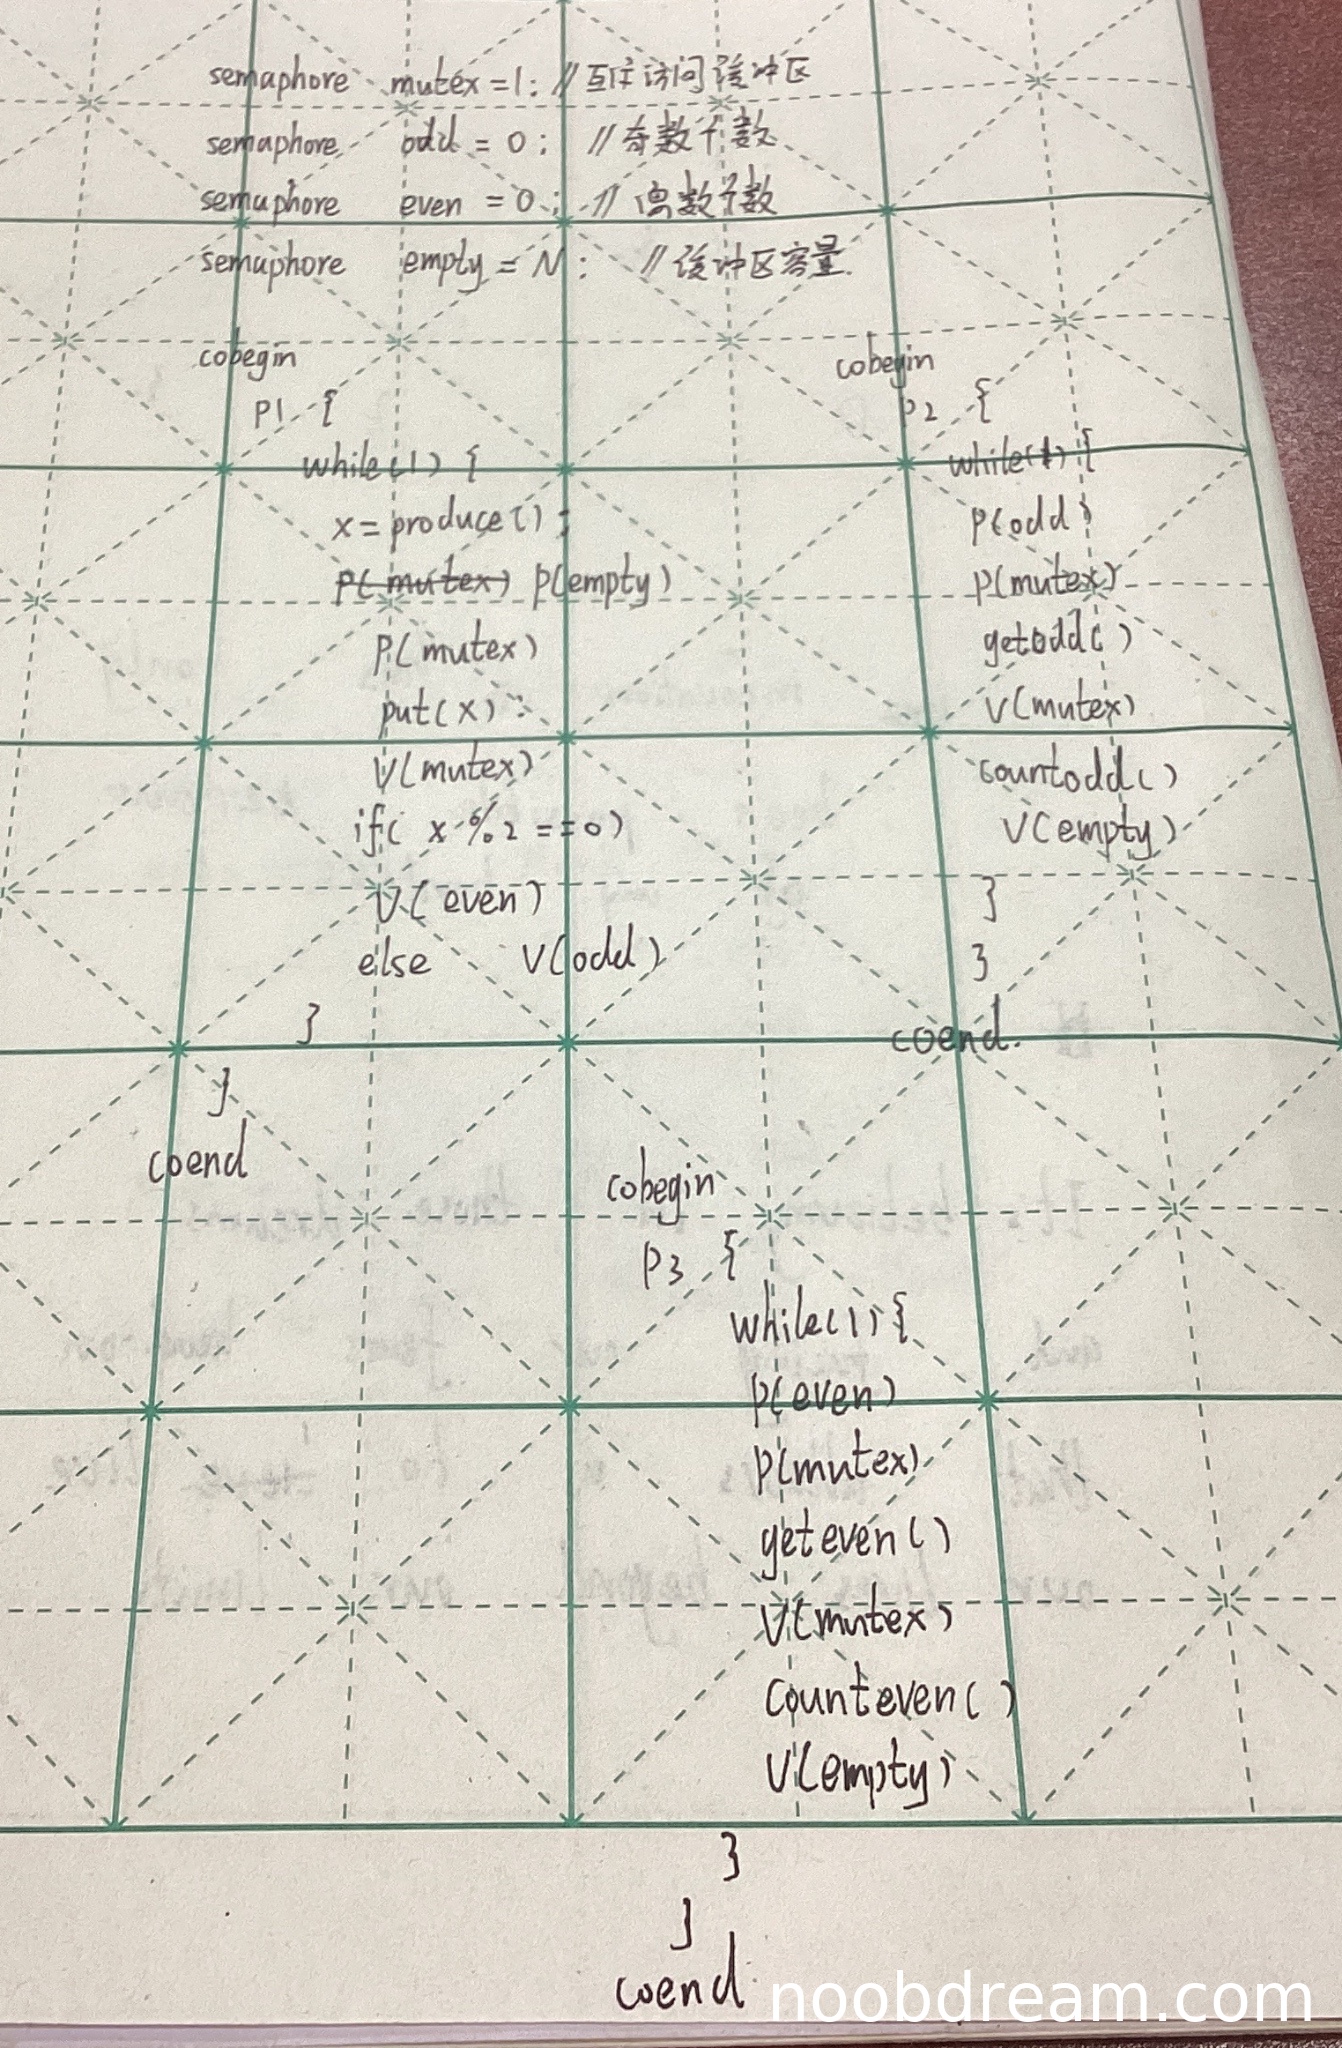 semaphore mutex=1; //互斥访问缓冲区
semaphore odd = 0; //奇数个数
semaphore even = 0; //偶数个数
semaphore empty = N; //缓冲区容量.
cobegin
P1 {
while(1) {
x = produce();
P(mutex) P(empty)
P(mutex)
put(x);
V(mutex)
if( x % 2 == 0)
V(even)
else V(odd)
}
}
coend
cobegin
P2 {
while(1) {
P(odd)
P(mutex)
getodd()
V(mutex)
countodd()
V(empty)
}
}
coend.
cobegin
P3 {
while(1) {
P(even)
P(mutex)
geteven()
V(mutex)
counteven()
V(empty)
}
}
coend
noobdream.com